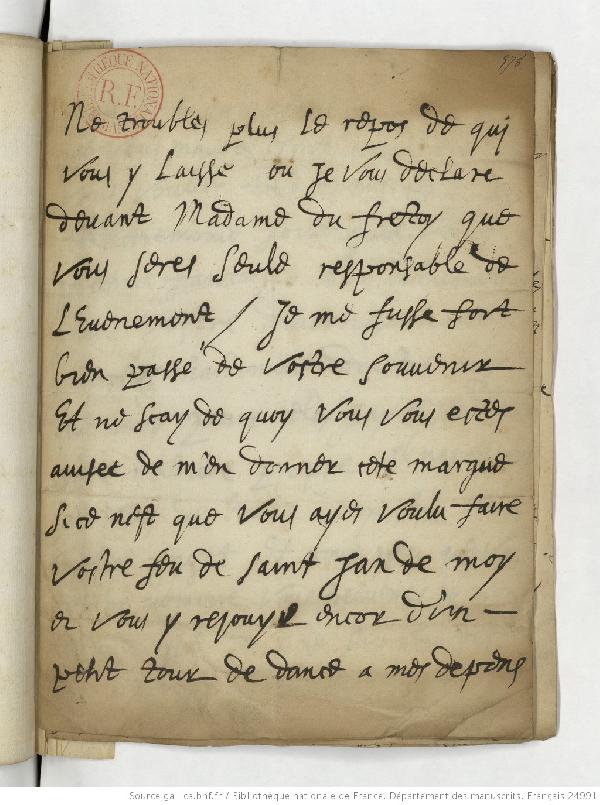 576
BIBLIOTHÈQUE NATIONALE
R.F.
Ne troubles plus le repos de qui
vous y Laisse ou Je vous declare
devant Madame du fretoy que
vous seres seule responsable de
L'Evenement / Je me fusse fort
bien passé de vostre souvenir
Et ne scay de quoy vous vous estes
avisee de m'en donner cete marque
si ce nest que vous ayes voulu faire
vostre feu de saint Jan de moy
et vous y resouyr encor d'un
petit tour de dance a mes depens
Source gallica.bnf.fr / Bibliothèque nationale de France. Département des manuscrits. Français 24991